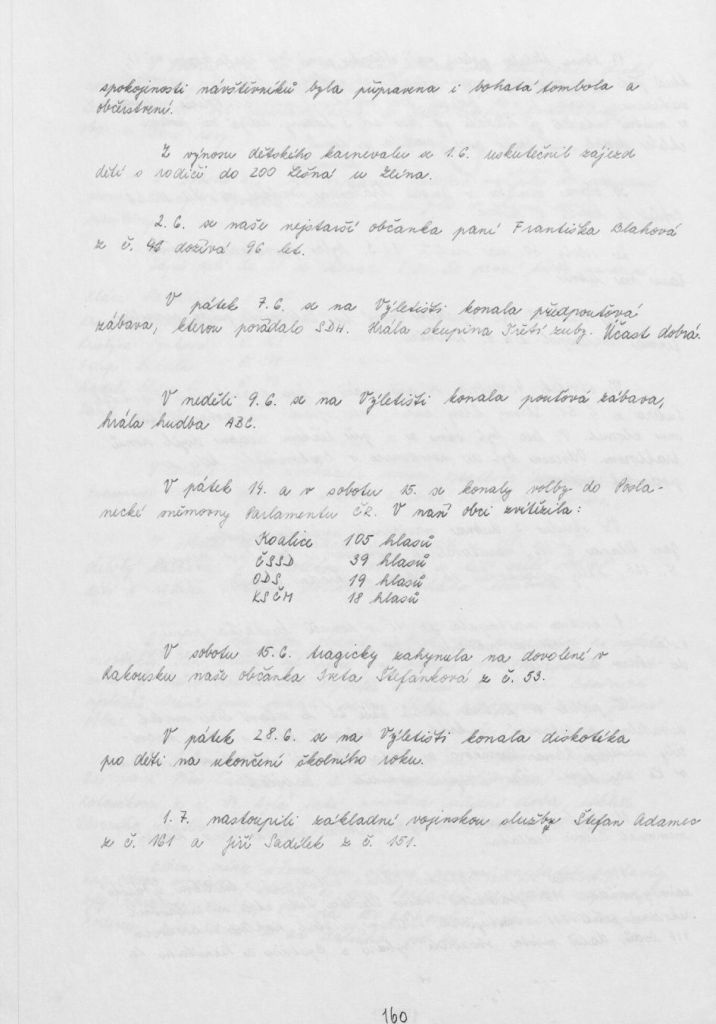 spokojenosti návštěvníků byla připravena i bohatá tombola a
občerstvení.
Z výnosu dětského karnevalu se 1.6. uskutečnil zájezd
dětí s rodiči do ZOO Lešná u Zlína.
2.6. se naše nejstarší občanka paní Františka Blahová
z č. dožívá 96 let.
V pátek 7.6. se na Výletišti konala předpouťová
zábava, kterou pořádalo SDH. Hrála skupina Třetí zuby. Účast dobrá.
V neděli 9.6. se na Výletišti konala pouťová zábava,
hrála hudba ABC.
V pátek 14. a v sobotu 15. se konaly volby do Posla-
necké sněmovny Parlamentu ČR. V naší obci zvítězila:
Koalice 105 hlasů
ČSSD 39 hlasů
ODS 19 hlasů
KSČM 18 hlasů
V sobotu 15.6. tragicky zahynula na dovolené v
Rakousku naše občanka Iveta Štefánková z č. 53.
V pátek 28.6. se na Výletišti konala diskotéka
pro děti na ukončení školního roku.
1.7. nastoupili základní vojenskou službu Štefan Adamec
z č. 161 a Jiří Sadílek z č. 151.
160